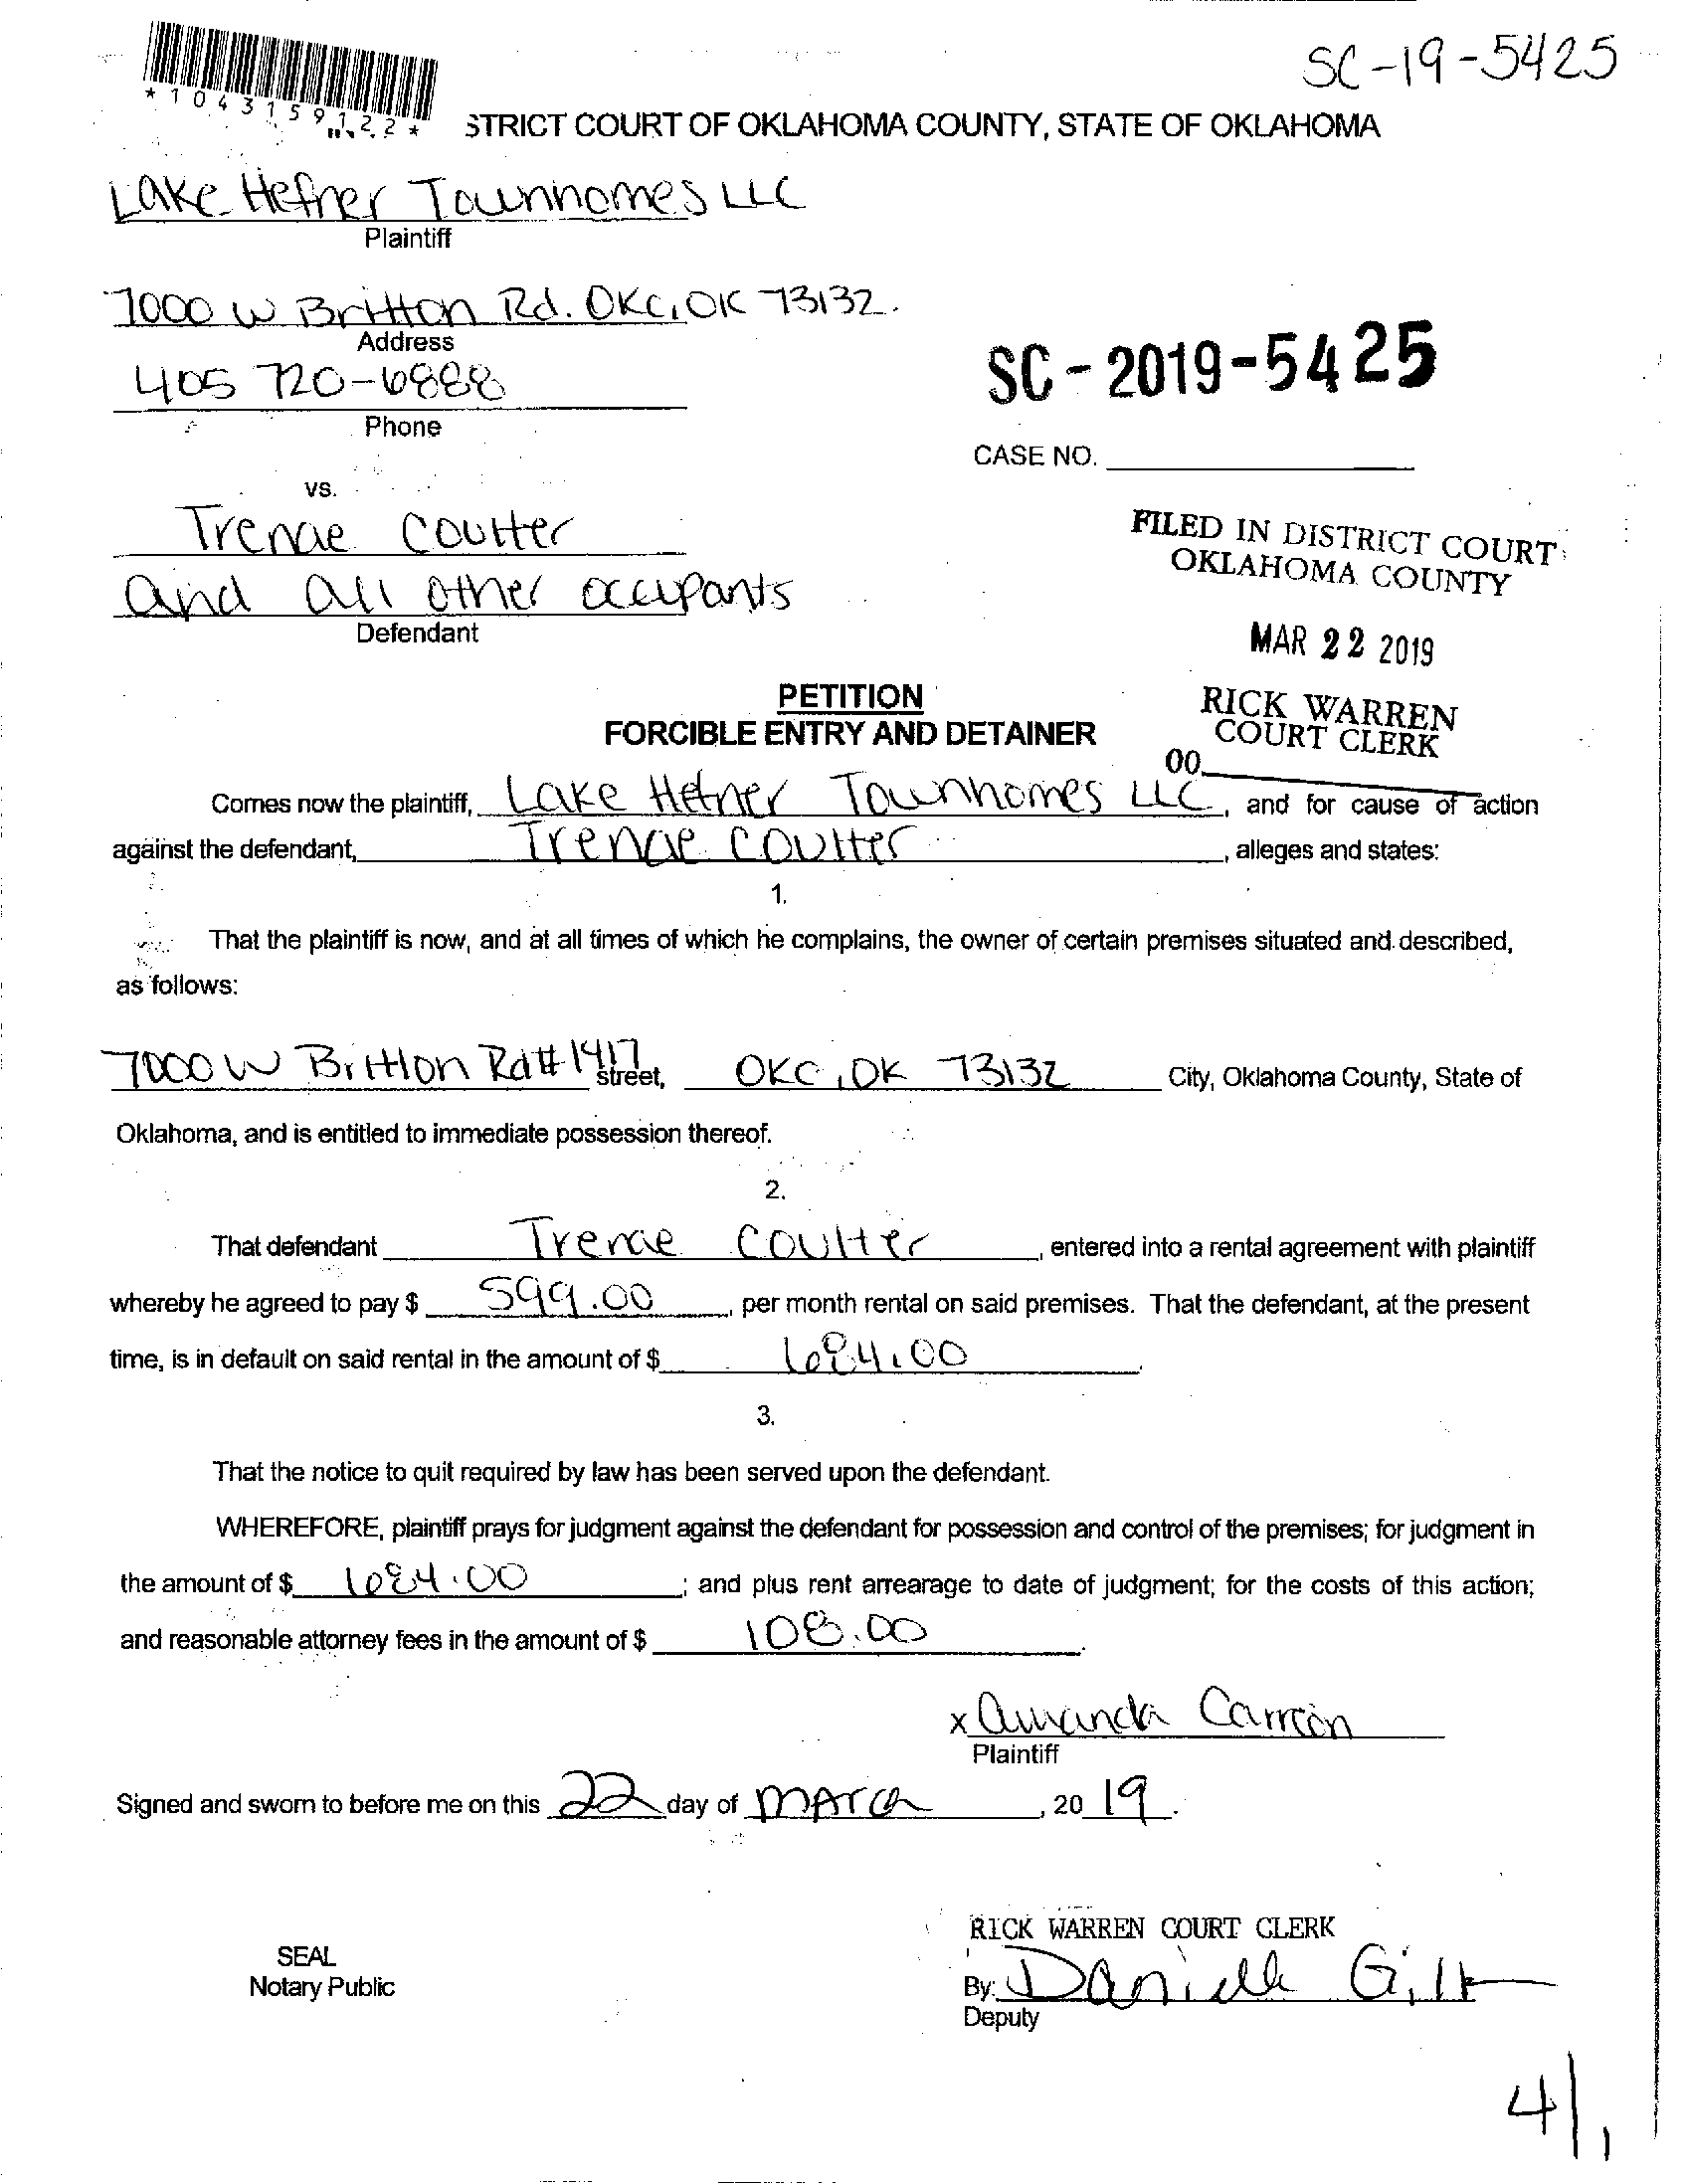 SC-19-5425
*1043159122*
STRICT COURT OF OKLAHOMA COUNTY, STATE OF OKLAHOMA
Lake Hefner Townhomes LLC
Plaintiff
7000 W Britton Rd. OKC, OK 73132.
Address
405 720-6888
Phone
SC-2019-5425
CASE NO.
vs.
Trenae Coulter
and all other occupants
Defendant
FILED IN DISTRICT COURT
OKLAHOMA COUNTY
MAR 22 2019
RICK WARREN
COURT CLERK
00
PETITION
FORCIBLE ENTRY AND DETAINER
Comes now the plaintiff, Lake Hefner Townhomes LLC, and for cause of action
against the defendant, Trenae Coulter, alleges and states:
1.
That the plaintiff is now, and at all times of which he complains, the owner of certain premises situated and described,
as follows:
7000 W Britton Rd #1417 street, OKC, OK 73132 City, Oklahoma County, State of
Oklahoma, and is entitled to immediate possession thereof.
2.
That defendant Trenae Coulter, entered into a rental agreement with plaintiff
whereby he agreed to pay $ 599.00, per month rental on said premises. That the defendant, at the present
time, is in default on said rental in the amount of $ 684.00.
3.
That the notice to quit required by law has been served upon the defendant.
WHEREFORE, plaintiff prays for judgment against the defendant for possession and control of the premises; for judgment in
the amount of $ 684.00; and plus rent arrearage to date of judgment; for the costs of this action;
and reasonable attorney fees in the amount of $ 108.00.
x Amanda Carreon
Plaintiff
Signed and sworn to before me on this 22 day of March, 2019.
RICK WARREN COURT CLERK
SEAL
Notary Public
By: Danielle
Deputy
4/1